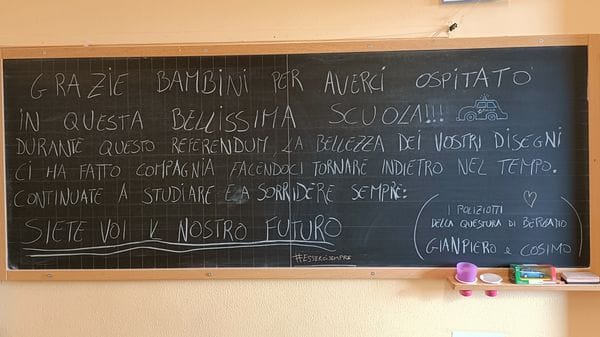 GRAZIE BAMBINI PER AVERCI OSPITATO
IN QUESTA BELLISSIMA SCUOLA!!!
DURANTE QUESTO REFERENDUM, LA BELLEZZA DEI VOSTRI DISEGNI
CI HA FATTO COMPAGNIA FACENDOCI TORNARE INDIETRO NEL TEMPO.
CONTINUATE A STUDIARE E A SORRIDERE SEMPRE:
SIETE VOI IL NOSTRO FUTURO
#ESSERCISEMPRE
(I POLIZIOTTI
DELLA QUESTURA DI
GIANPIERO e COSIMO)